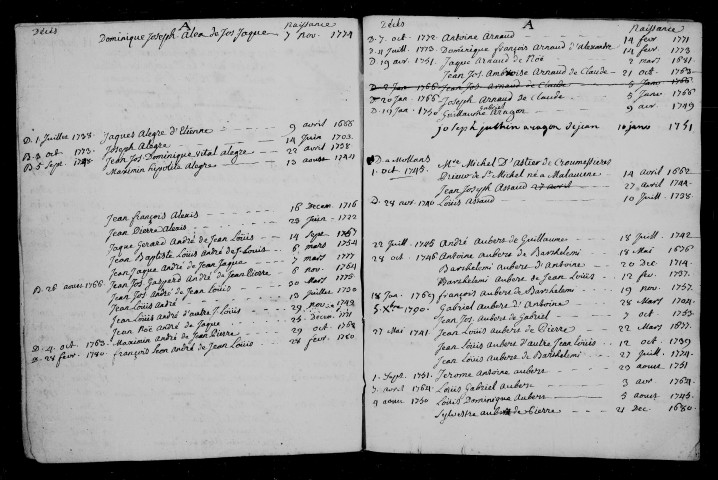 Décès A Naissance
Dominique Joseph Alea de Jos Jaque 7 Nov. 1774
D. 1 Juillet 1738. Jaques Alegre d'Etienne 9 avril 1666
D. 3 oct. 1773. Joseph Alegre 14 Juin 1703
B. 5 Sept. 1748 Jean Jos Dominique Vital alegre 22 avril 1738
Maximin hipolite Alegre 13 aoust 1744
Jean françois Alexis 16 Decem. 1716
Jean Pierre Alexis 23 Juin 1722
Jaque Gerard André de Jean Louis 14 Sept. 1757
Jean Baptiste Louis André de J. Louis 6 mars 1754
Jean Jaque André de Jean Jaque 7 mars 1777
B. 26 aoust 1766. Jean Jos Gaspard André de Jean Pierre 6 nov. 1764
Jean Jos André de Jean Louis 30 Mars 1775
Louis André 13 Juillet 1730
Jean Louis André d'autre J. Louis 29 nov. 1749
Jean Noë André de Jaque 25 Décem. 1731
D. 4 oct. 1763. Maximin André de Jean Pierre 29 oct 1762
D. 28 fevr. 1780 françois Leon André de Jean Louis 28 fevr. 1760
Décès A Naissance
D. 7. oct. 1772 Antoine Arnaud 14 fevr 1771
D. 11 Juill. 1773. Dominique françois Arnaud d'alexandre 14 fevr. 1773
D. 19 avr. 1751. Jaque Arnaud de Noë 2 mars 1681
Jean Jos. Ambroise Arnaud de Claude 21 oct. 1763
D. 2 Jan. 1766 Jean Jos Arnaud de Claude 5 Janv. 1766
D. 20 Jan. 1766 Joseph Arnaud de Claude 5 Janv 1766
D. 19 Jan. 1750 Guillaume gabriel Aragon 9 avr 1749
Joseph justin aragon de jean 10 janv 1751
D. a Mollans Mre Michel D'Astier de Cromessiere
1. oct. 1745. Prieur de St Michel né a Malaucene 14 avril 1662
Jean Joseph Assaud 27 avril 27 avril 1744
D. 24 avr. 1740 Louis Assaud 10 Juill. 1738
22 Juill. 1745 André Aubert de Guillaume 18 Juill. 1742
28 oct. 1746 Antoine Aubert de Barthelemi 18 Mai 1676
Barthelemi Aubert d'Antoine 20 Dec 1714
Barthelemi Aubert de Jean Louis 12 fev. 1737
18 Jan. 1769 françois Aubert de Barthelemi 19 nov. 1757
5. Xbre 1790. Gabriel Aubert d'Antoine 28 Mars 1704
Jean Jos. Aubert de Gabriel 7 oct 1753
27 Mai 1741 Jean Louis Aubert de Pierre 22 Mars 1677
Jean Louis Aubert d'autre Jean Louis 12 oct 1739
Jean Louis Aubert de Barthelemi 27 Juill. 1774
1. Sept. 1751. Jerome Antoine Aubert 23 aoust 1751
7 avril 1764. Louis Gabriel Aubert 3 avr 1764
9 aout 1750 Louis Dominique Aubert 5 aoust 1745
Sylvestre aubert de Pierre 21 Dec. 1680